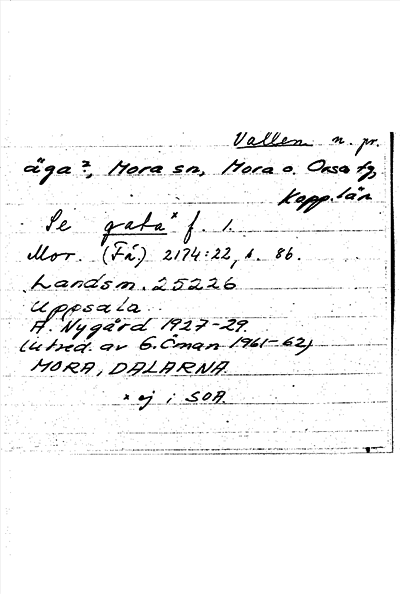 Vallen n. pr.
äga?, Mora sn, Mora o. Orsa tg,
Kopp. län
Se gata* f. 1.
Mor. (Få.) 2174:22, s. 86.
Landsm. 25226
Uppsala
A. Nygård 1927-29.
(utred. av G. Öman 1961-62)
MORA, DALARNA.
* ej i SOA.